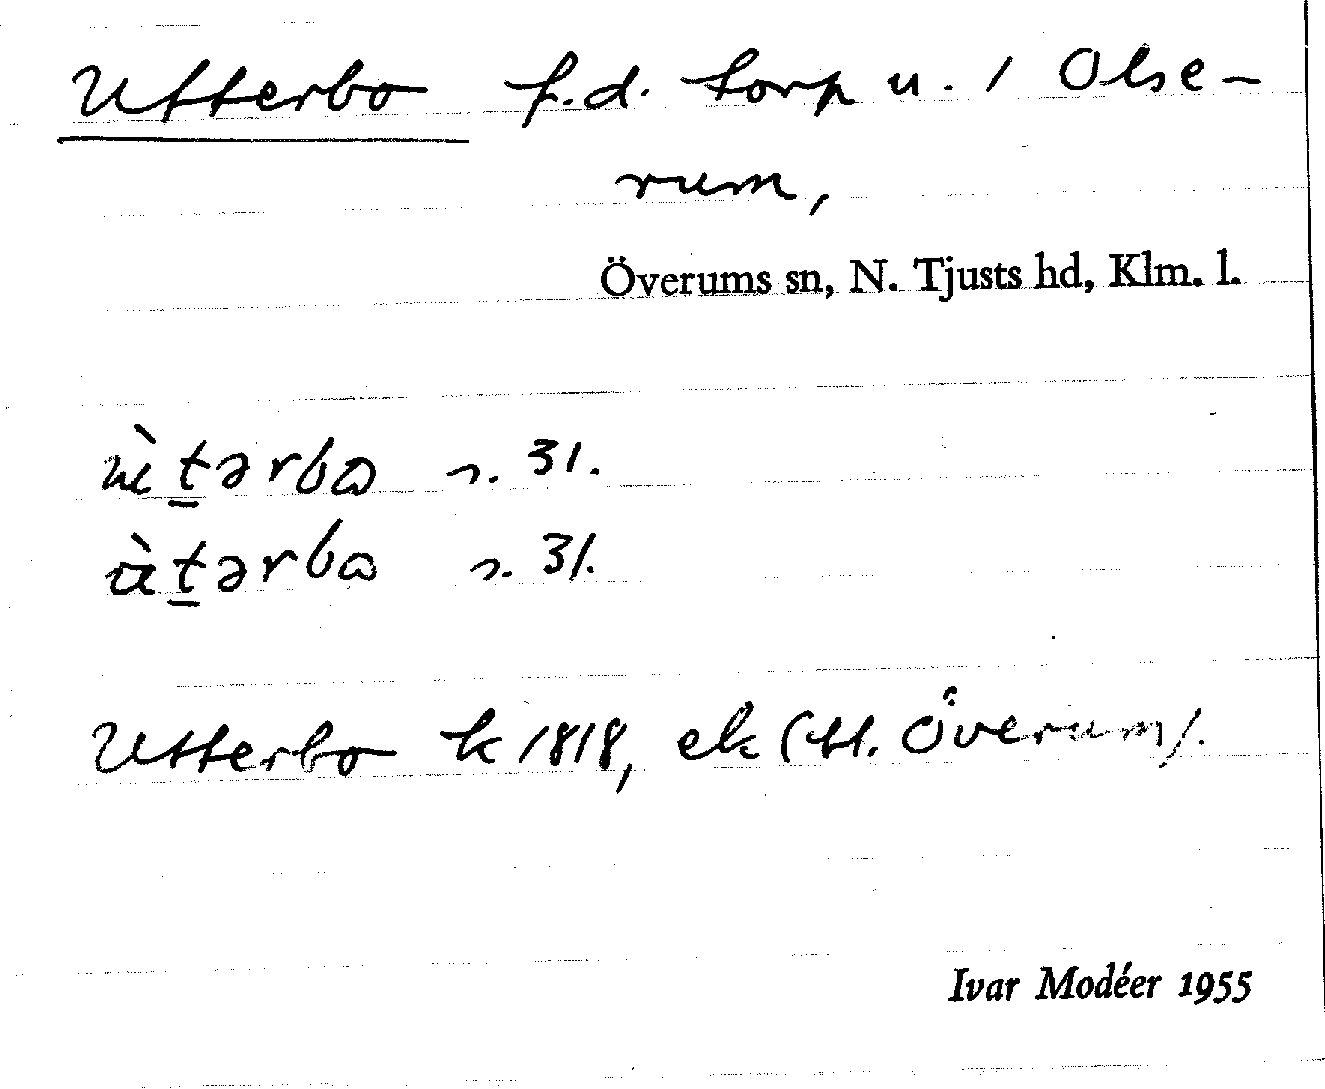 Utterbo f.d. torp u. 1 Olse-
rum,
Överums sn, N. Tjusts hd, Klm. l.
s. 31.
s. 31.
Utterbo k 1818, ek (st. Överum).
Ivar Modéer 1955